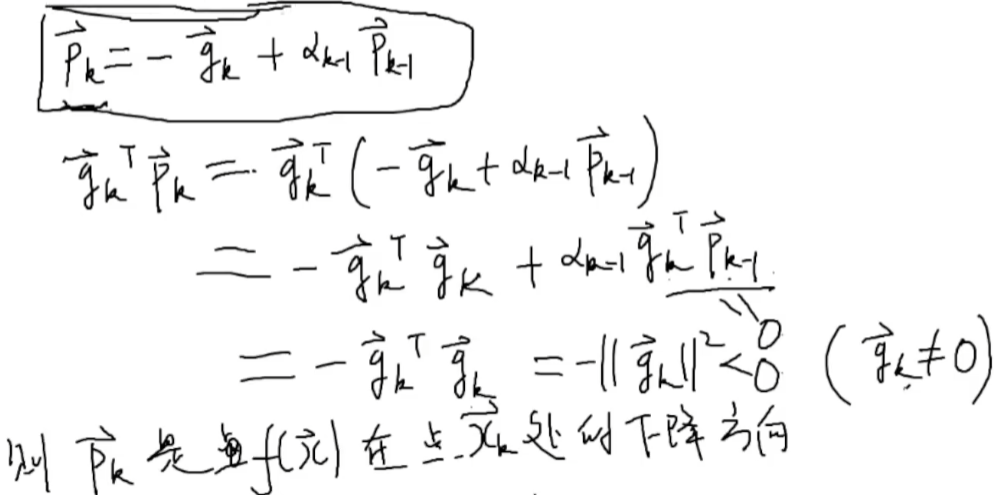 p⃗ₖ = - g⃗ₖ + αₖ₋₁ p⃗ₖ₋₁
g⃗ₖᵀ p⃗ₖ = g⃗ₖᵀ (- g⃗ₖ + αₖ₋₁ p⃗ₖ₋₁)
= - g⃗ₖᵀ g⃗ₖ + αₖ₋₁ g⃗ₖᵀ p⃗ₖ₋₁
0
= - g⃗ₖᵀ g⃗ₖ = -‖g⃗ₖ‖² < 0 (g⃗ₖ ≠ 0)
则 p⃗ₖ 是 f(x⃗) 在点 x⃗ₖ 处的下降方向